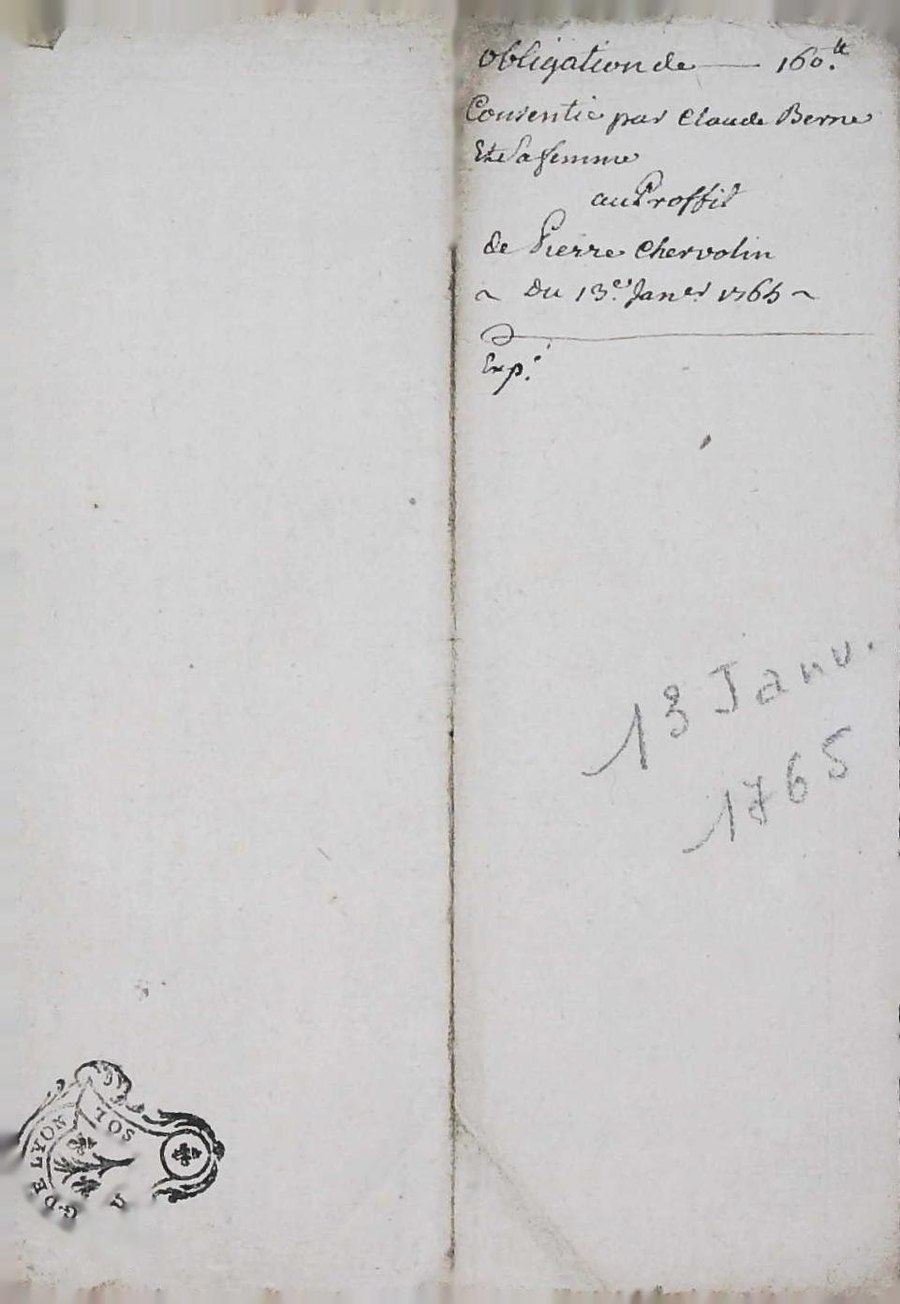 obligation de — 160.ᵗᵗ
Consentie par Claude Berne
Et Sa femme
au Proffit
de Pierre Chervolin
~ Du 13.ᵉ Janᵉʳ 1765 ~
Exp.ᵉ
13 Janv.
1765
G. DE LYON
SOL